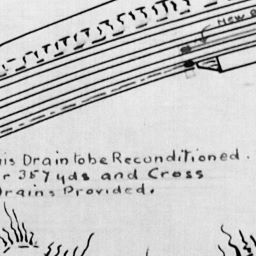 NEW
is Drain to be Reconditioned.
r 357 yds and Cross
Drains Provided.